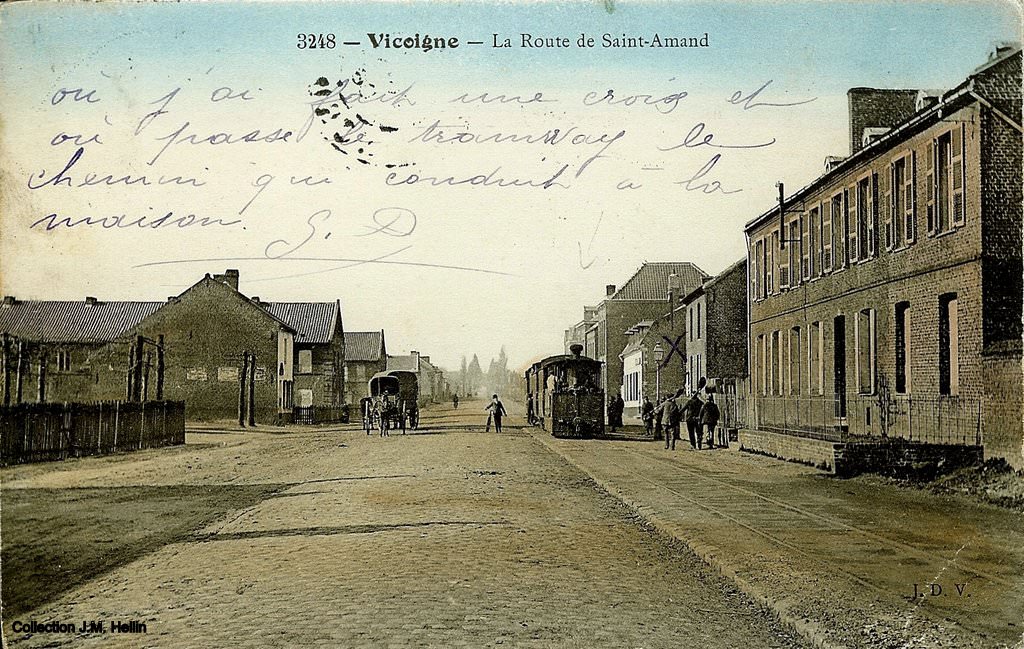 3248 – Vicoigne – La Route de Saint-Amand
où j'ai fait une croix et
où passe le tramway le
chemin qui conduit à la
maison. G. D
J. D. V.
Collection J.M. Hellin